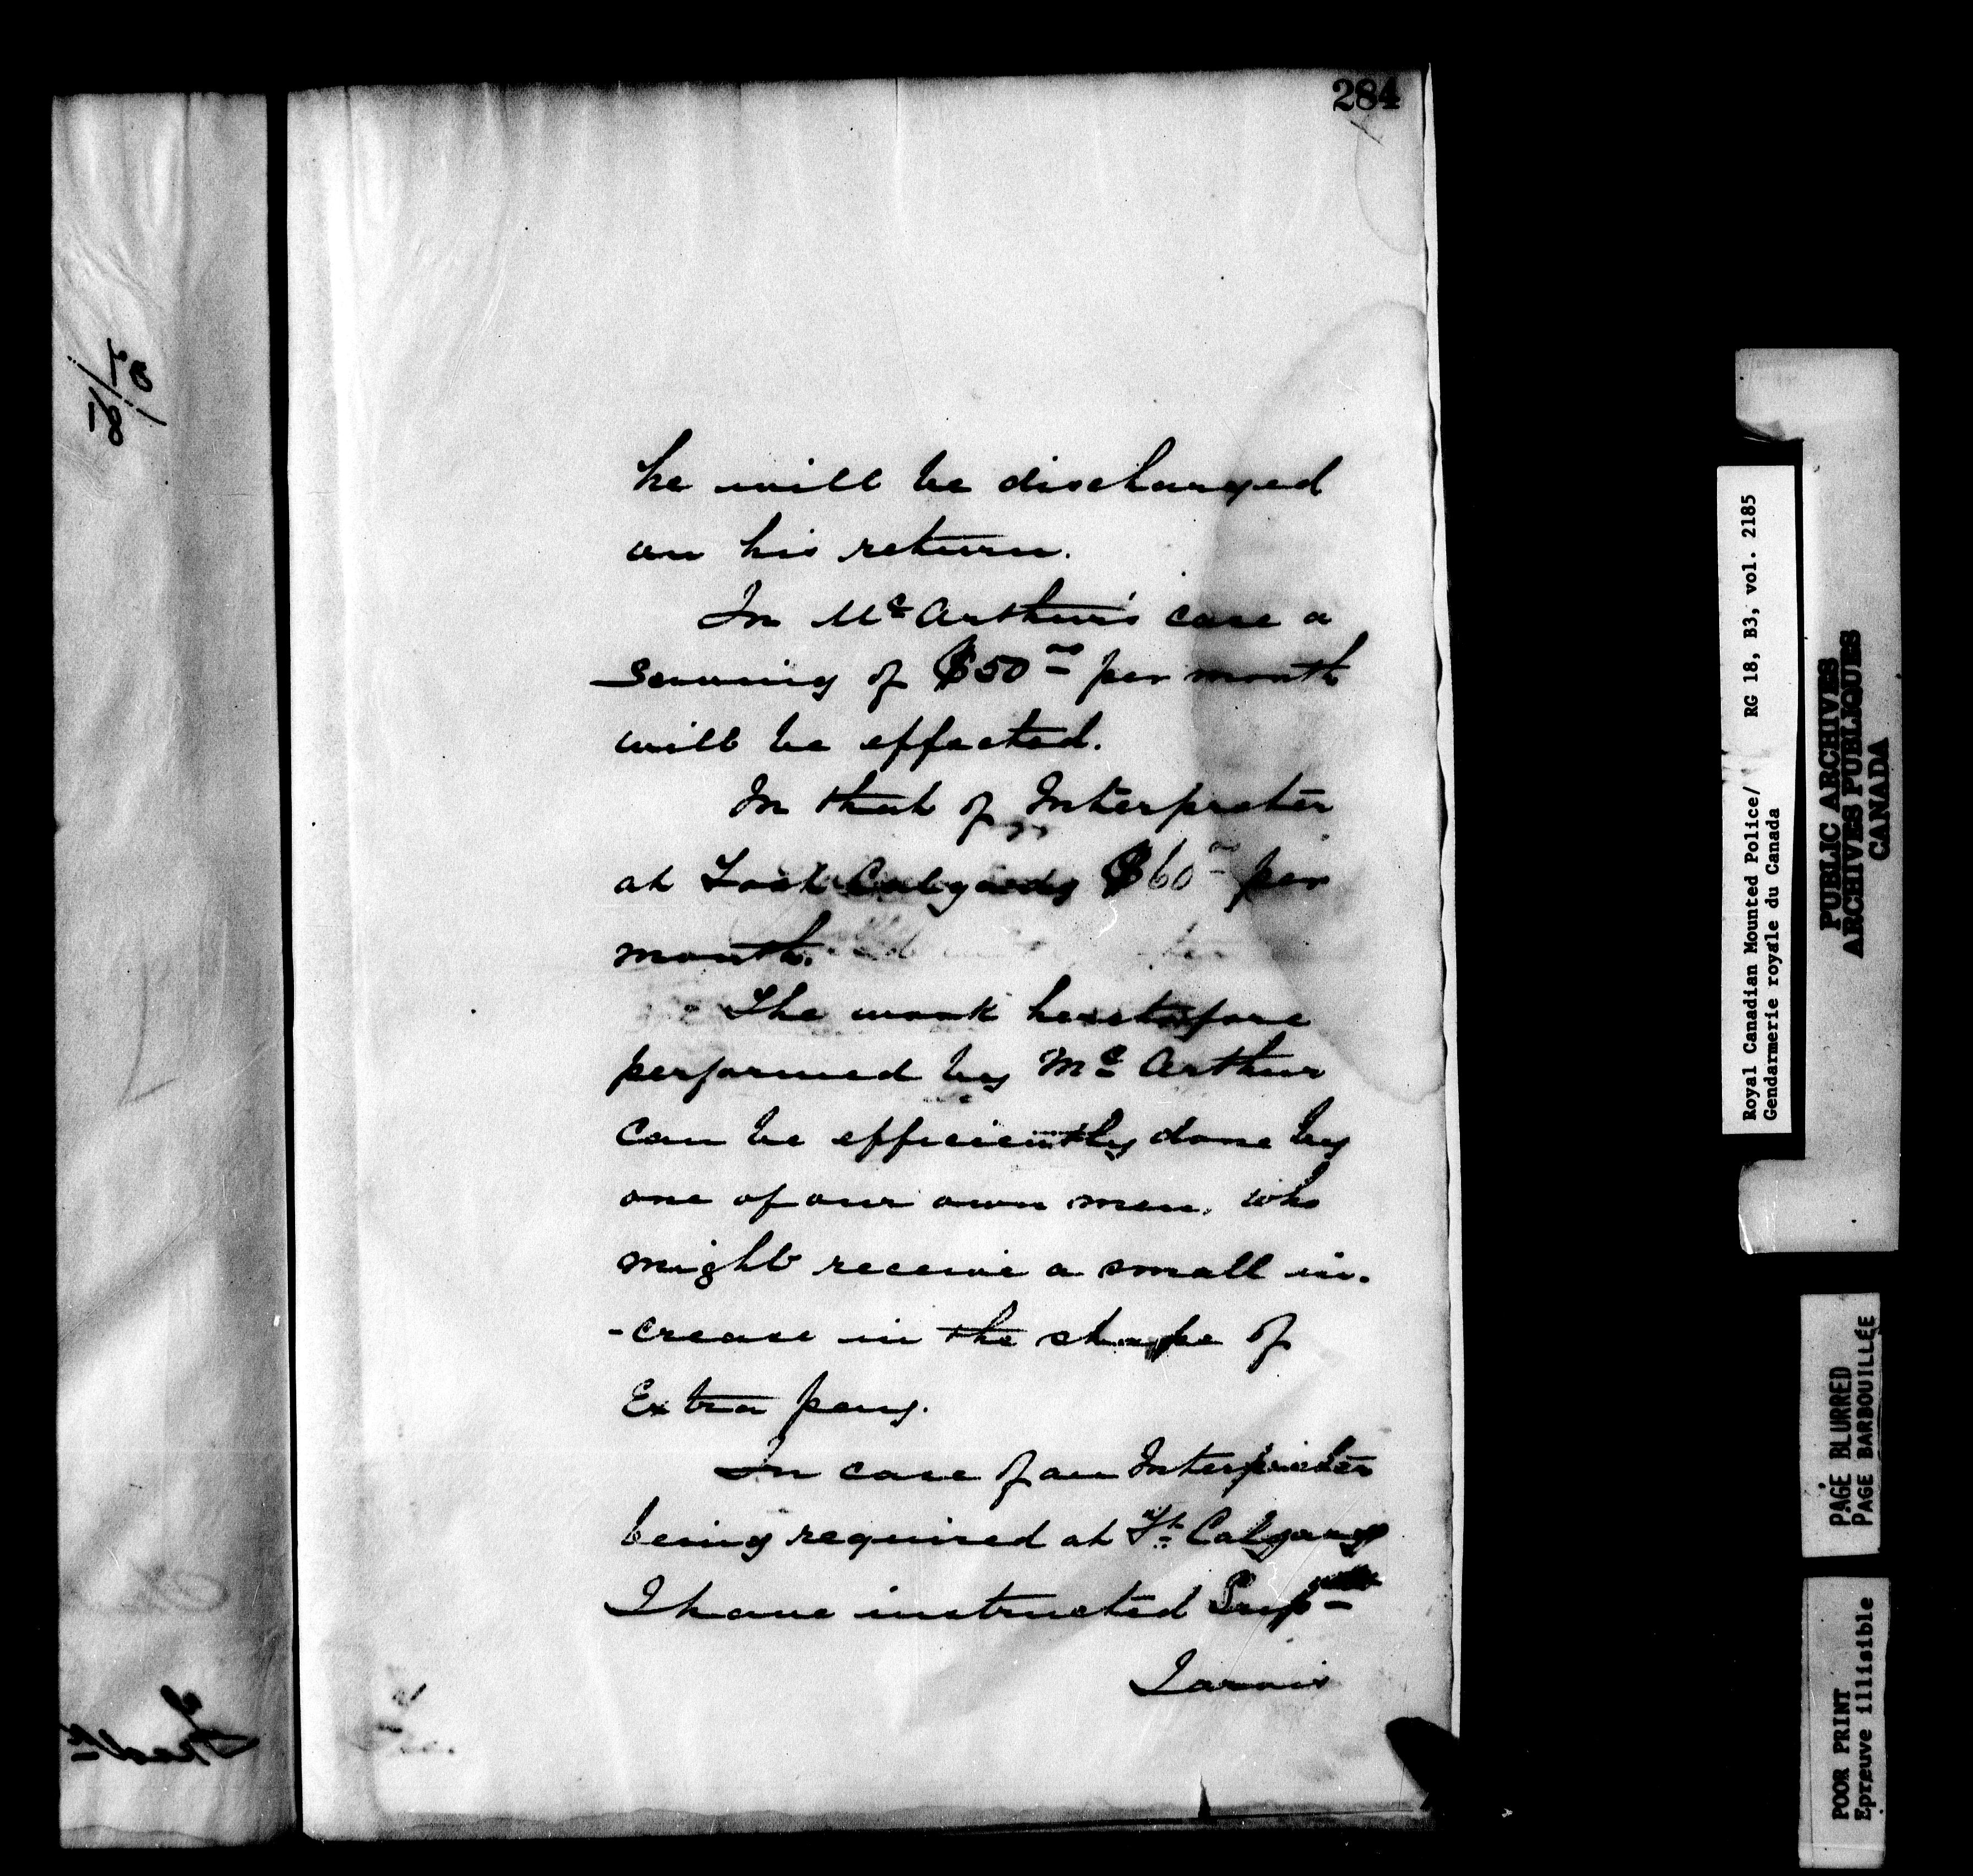 284
he will be discharged
on his return.
In Mc Arthur's case a
Saving of $50 00 per month
will be effected.
In that of Interpreter
at Fort Calgary $60 00 per
month.
The work heretofore
performed by Mc Arthur
can be efficiently done by
one of our own men, who
might receive a small in-
-crease in the shape of
Extra pay.
In case of an Interpreter
being required at Ft. Calgary
I have instructed Supt
Jarvis
Royal Canadian Mounted Police/ RG 18, B3, vol. 2185
Gendarmerie royale du Canada
PUBLIC ARCHIVES
ARCHIVES PUBLIQUES
CANADA
PAGE BLURRED
PAGE BARBOUILLÉE
POOR PRINT
Epreuve illisible